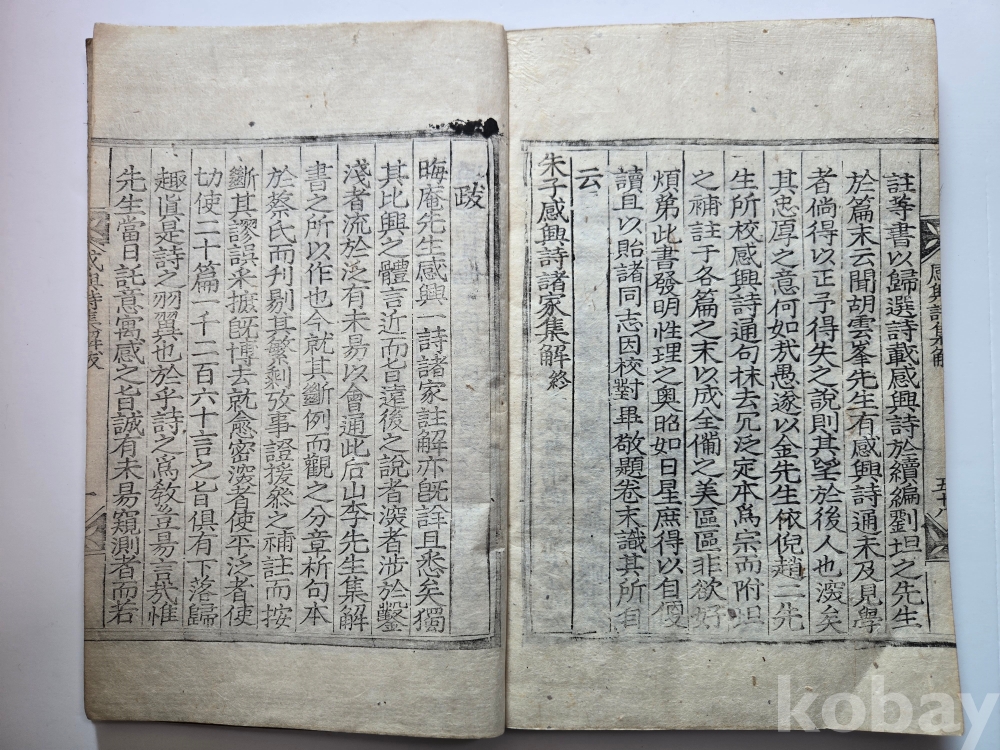 註等書以歸選詩載感興詩於續編劉坦之先生
於篇末云聞胡雲峯先生有感興詩通未及見學
者倘得以正予得失之說則其望於後人也深矣
其忠厚之意何如哉愚遂以金先生依倪趙二先
生所校感興詩通句抹去冗泛定本爲宗而附坦
之補註于各篇之末以成全備之美區區非欲好
煩弟此書發明性理之奧昭如日星庶得以自便
讀且以貽諸同志因校對畢敬題卷末識其所自
云
朱子感興詩諸家集解終
感興詩集解
五十八
跋
晦庵先生感興一詩諸家註解亦旣詮且悉矣獨
其比興之體言近而旨遠後之說者深者涉於鑿
淺者流於泛有未易以會通此后山李先生集解
書之所以作也今就其斷例而觀之分章析句本
於蔡氏而刊剔其繁剩攷事證援叅之補註而按
斷其謬誤采摭旣博去就愈密深者使平泛者使
切使二十篇一千二百六十言之旨俱有下落歸
趣眞是詩之羽翼也於乎詩之爲敎豈易言哉惟
先生當日託意寓感之旨誠有未易窺測者而若
感興詩集解跋
一
kobay